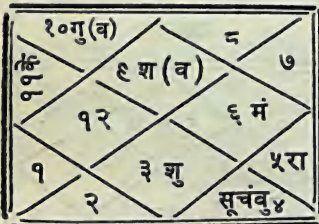 १०गु(व)
८
११के
९ श(व)
७
१२
६ मं
१
३ शु
५रा
२
सूचंबु४